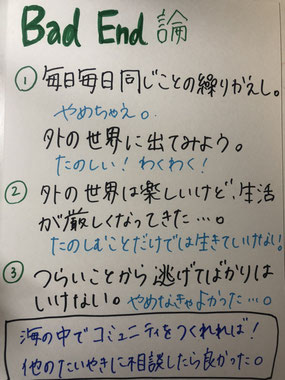 Bad End 論
① 毎日毎日同じことの繰りかえし。
やめちゃえ。
外の世界に出てみよう。
たのしい！わくわく！
② 外の世界は楽しいけど、生活
が厳しくなってきた…。
たのしむことだけでは生きていけない。
③ つらいことから逃げてばかりは
いけない。やめなきゃよかった…。
海の中でコミュニティをつくれれば！
他のたいやきに相談したら良かった。